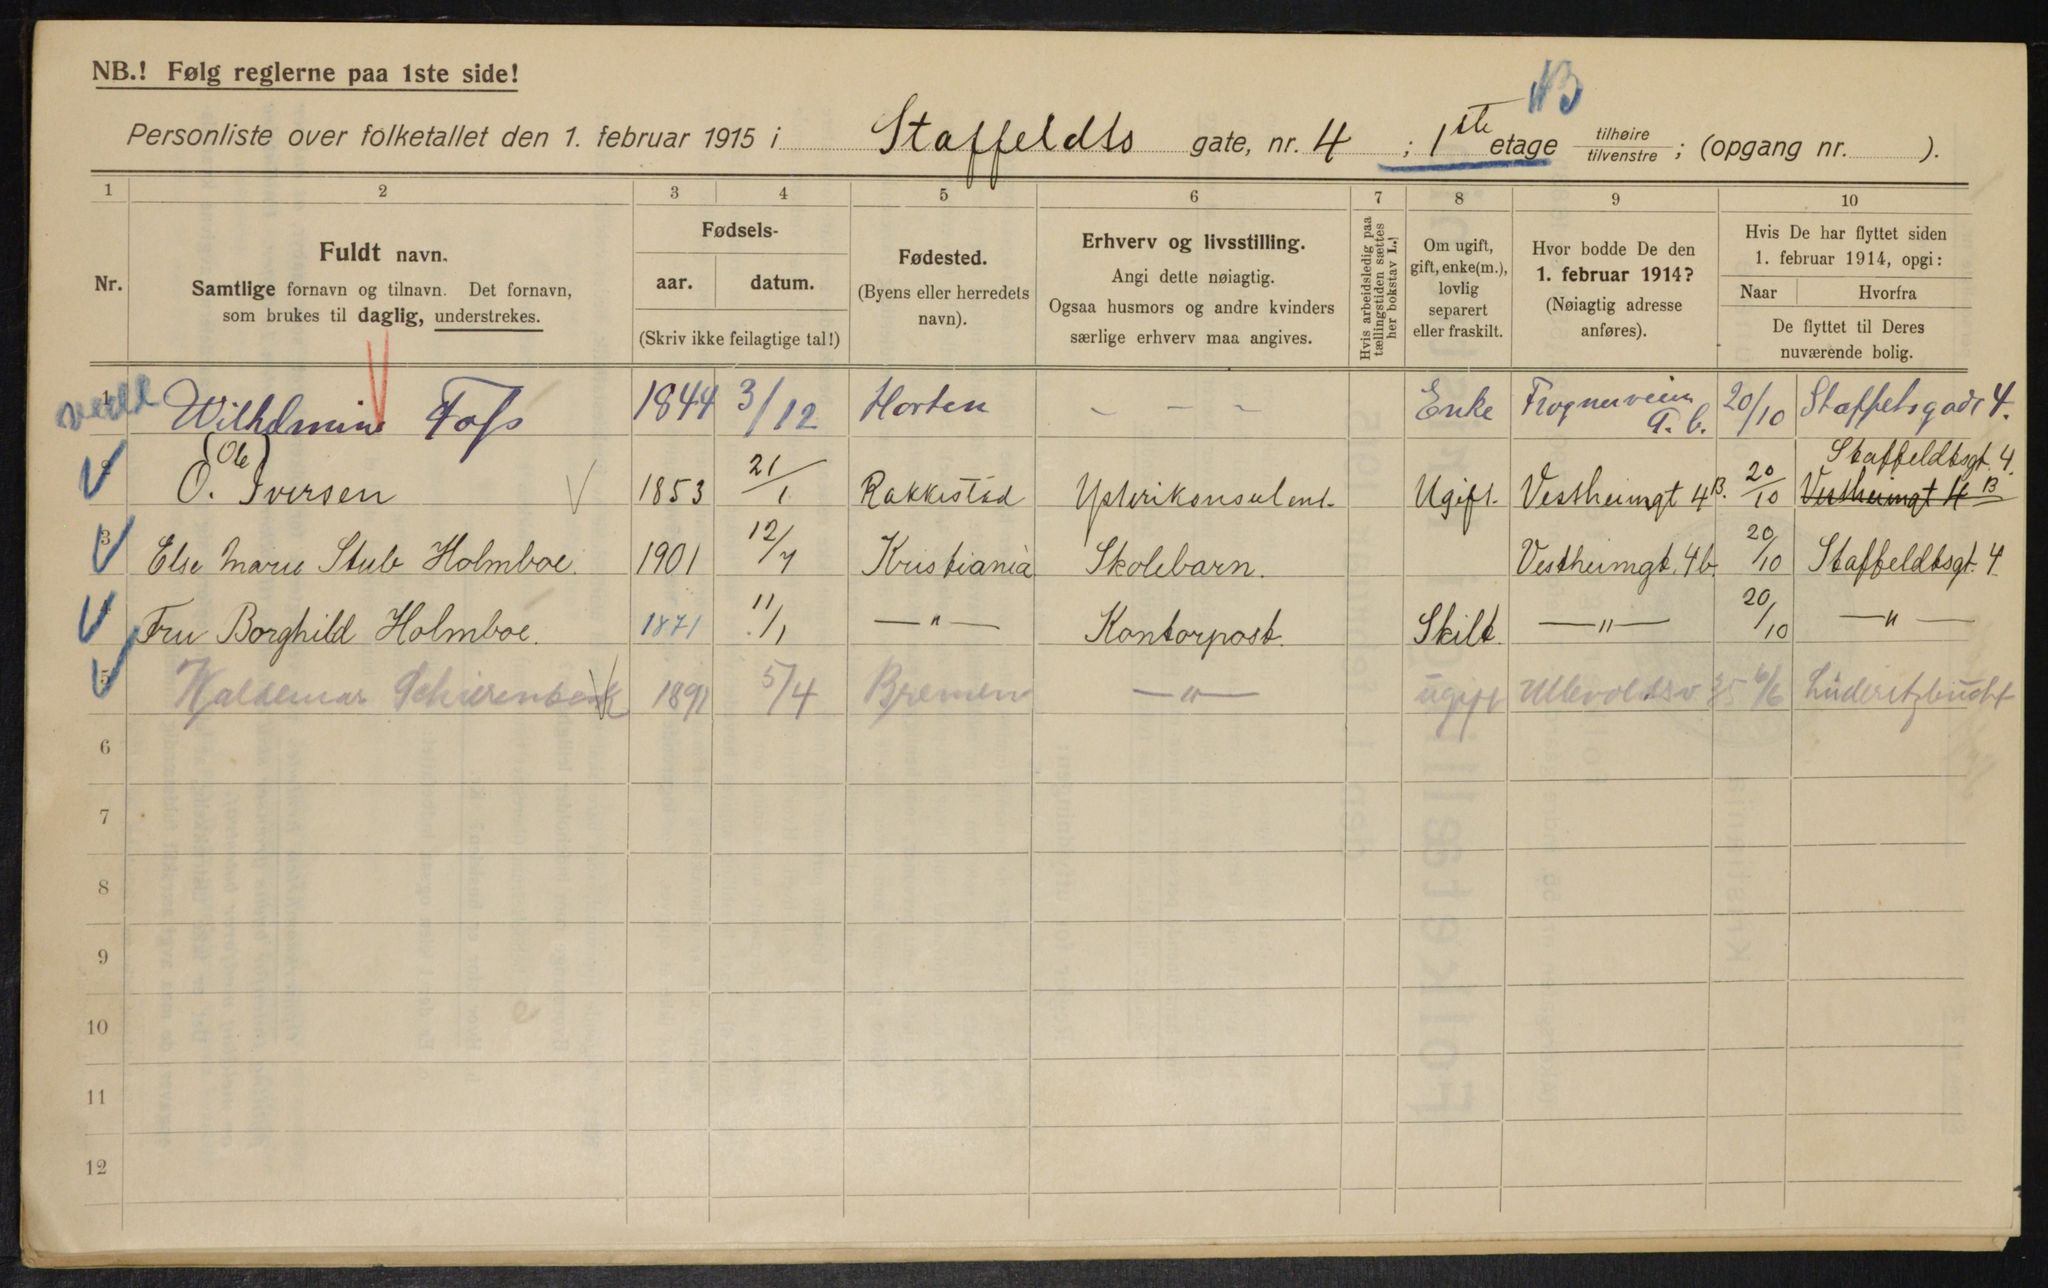 NB.! Følg reglerne paa 1ste side!
NB
Personliste over folketallet den 1. februar 1915 i Staffeldts gate, nr. 4 ; 1ste etage tilhøire tilvenstre ; (opgang nr. ).
1 2 3 4 5 6 7 8 9 10
Nr.
Fuldt navn.
Samtlige fornavn og tilnavn. Det fornavn,
som brukes til daglig, understrekes.
Fødsels-
aar. datum.
(Skriv ikke feilagtige tal!)
Fødested.
(Byens eller herredets
navn).
Erhverv og livsstilling.
Angi dette nøiagtig.
Ogsaa husmors og andre kvinders
særlige erhverv maa angives.
Hvis arbeidsledig paa
tællingstiden sættes
her bokstav L.!
Om ugift,
gift, enke(m.),
lovlig
separert
eller fraskilt.
Hvor bodde De den
1. februar 1914?
(Nøiagtig adresse
anføres).
Hvis De har flyttet siden
1. februar 1914, opgi:
Naar Hvorfra
De flyttet til Deres
nuværende bolig.
1 Wilhelmine Foss 1844 3/12 Horten - - - Enke Frognerveien 20/10 Staffelsgade 4.
2 O. (Ole) Iversen 1853 21/1 Rakkestad Ysterikonsulent. Ugift. Vestheimgt 4B. 20/10 Vestheimgt 4B Staffeldtsgt. 4.
3 Else Marie Stub Holmboe. 1901 12/7 Kristiania Skolebarn. Vestheimgt. 4b. 20/10 Staffeldtsgt. 4
4 Fru Borghild Holmboe. 1871 11/1 —"— Kontorpost. Skilt. —"— 20/10 —"—
5 Waldemar Schierenbeck 1891 5/4 Bremen —"— ugift Ullevoldsv 35 6/6 Lüderitzbucht
6
7
8
9
10
11
12